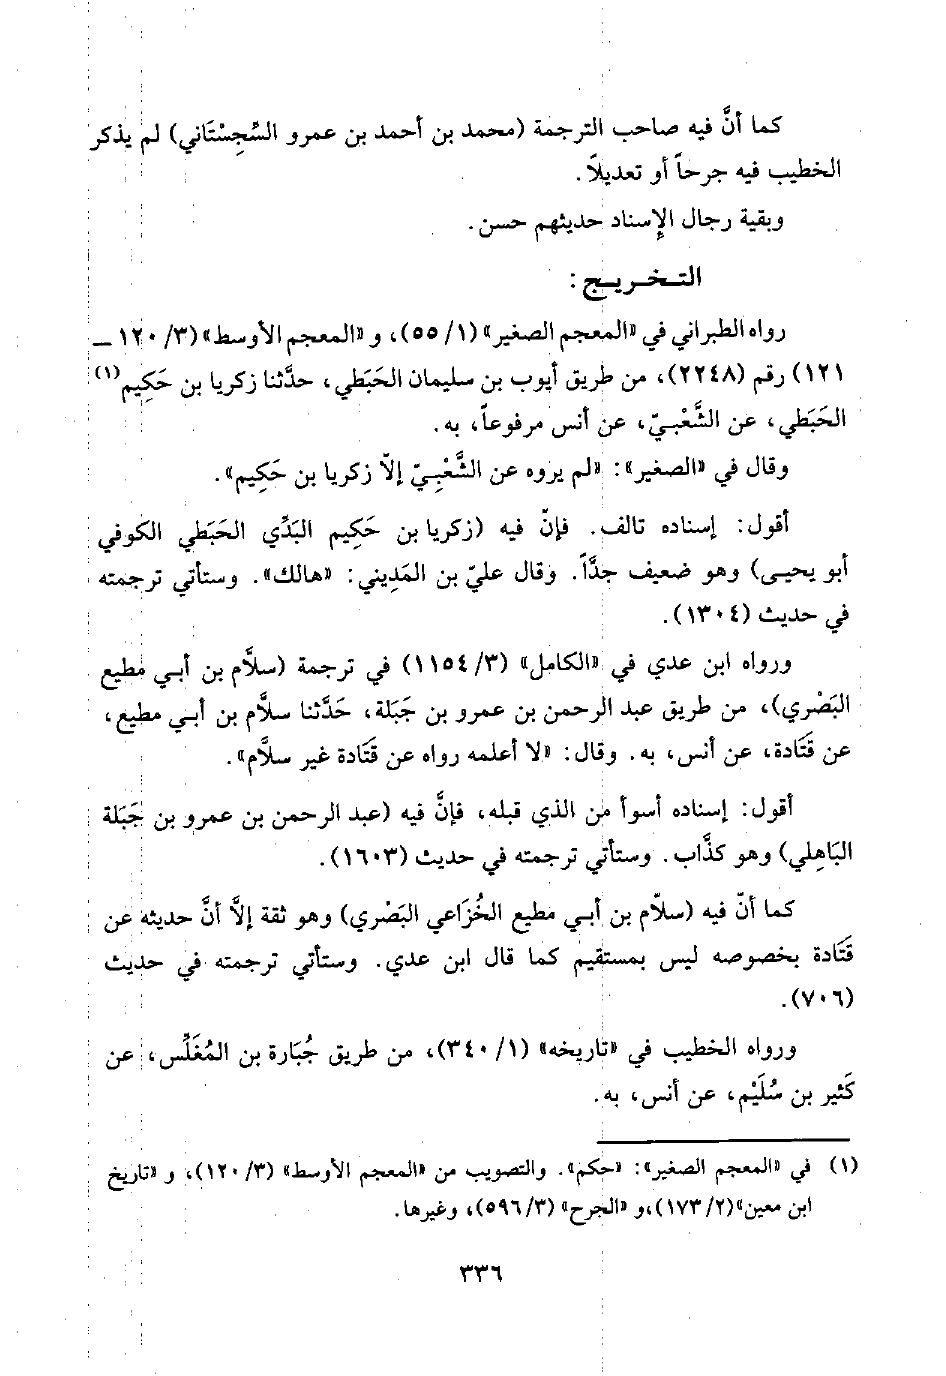 كما أنَّ فيه صاحب الترجمة (محمد بن أحمد بن عمرو السِّجِسْتَاني) لم يذكر
الخطيب فيه جرحاً أو تعديلاً.
وبقية رجال الإِسناد حديثهم حسن.
التـخـريـج :
رواه الطبراني في «المعجم الصغير» (١/ ٥٥)، و «المعجم الأوسط» (٣/ ١٢٠ ــ
١٢١) رقم (٢٢٤٨)، من طريق أيوب بن سليمان الحَبَطي، حدَّثنا زكريا بن حَكِيم(١)
الحَبَطي، عن الشَّعْبـيّ، عن أنس مرفوعاً، به.
وقال في «الصغير»: «لم يروه عن الشَّعْبِـيّ إلاّ زكريا بن حَكِيم».
أقول: إسناده تالف. فإنّ فيه (زكريا بن حَكِيم البَدِّي الحَبَطي الكوفي
أبو يحيـى) وهو ضعيف جدَّاً. وقال عليّ بن المَدِيني: «هالك». وستأتي ترجمته
في حديث (١٣٠٤).
ورواه ابن عدي في «الكامل» (٣/ ١١٥٤) في ترجمة (سلَّام بن أبـي مطيع
البَصْري)، من طريق عبد الرحمن بن عمرو بن جَبَلة، حَدَّثنا سلَّام بن أبـي مطيع،
عن قَتَادة، عن أنس، به. وقال: «لا أعلمه رواه عن قَتَادة غير سلَّام».
أقول: إسناده أسوأ من الذي قبله، فإنَّ فيه (عبد الرحمن بن عمرو بن جَبَلة
البَاهِلي) وهو كذَّاب. وستأتي ترجمته في حديث (١٦٠٣).
كما أنّ فيه (سلّام بن أبـي مطيع الخُزَاعي البَصْري) وهو ثقة إلاَّ أنَّ حديثه عن
قَتَادة بخصوصه ليس بمستقيم كما قال ابن عدي. وستأتي ترجمته في حديث
(٧٠٦).
ورواه الخطيب في «تاريخه» (١/ ٣٤٠)، من طريق جُبَارة بن المُغَلِّس، عن
كَثير بن سُلَيْم، عن أنس، به.
(١) في «المعجم الصغير»: «حكم». والتصويب من «المعجم الأوسط» (٣/ ١٢٠)، و «تاريخ
ابن معين» (٢/ ١٧٣)، و «الجرح» (٣/ ٥٩٦)، وغيرها.
٣٣٦